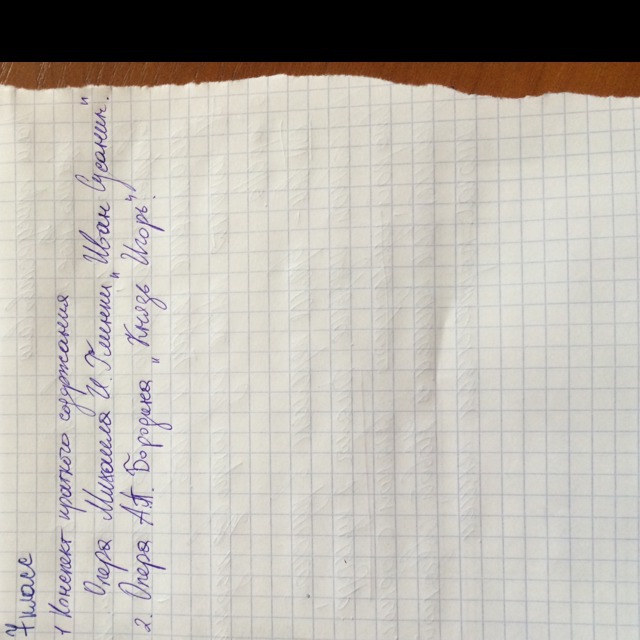 7 класс
1 Конспект краткого содержания
Опера Михаила И. Глинки „Иван Сусанин".
2. Опера А.П. Бородина „Князь Игорь".